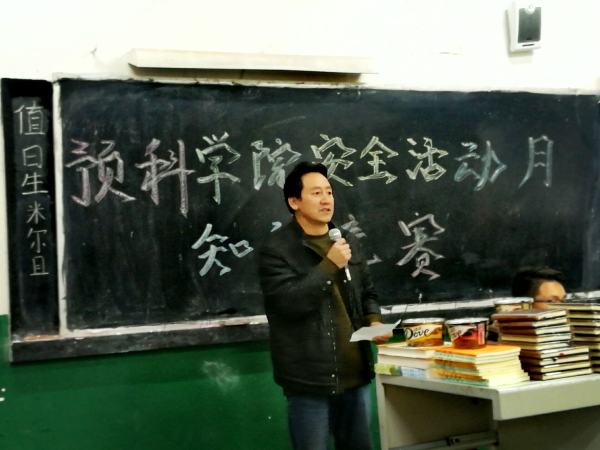 值日生米尔旦
预科学院安全活动月
知 竞赛
Dove